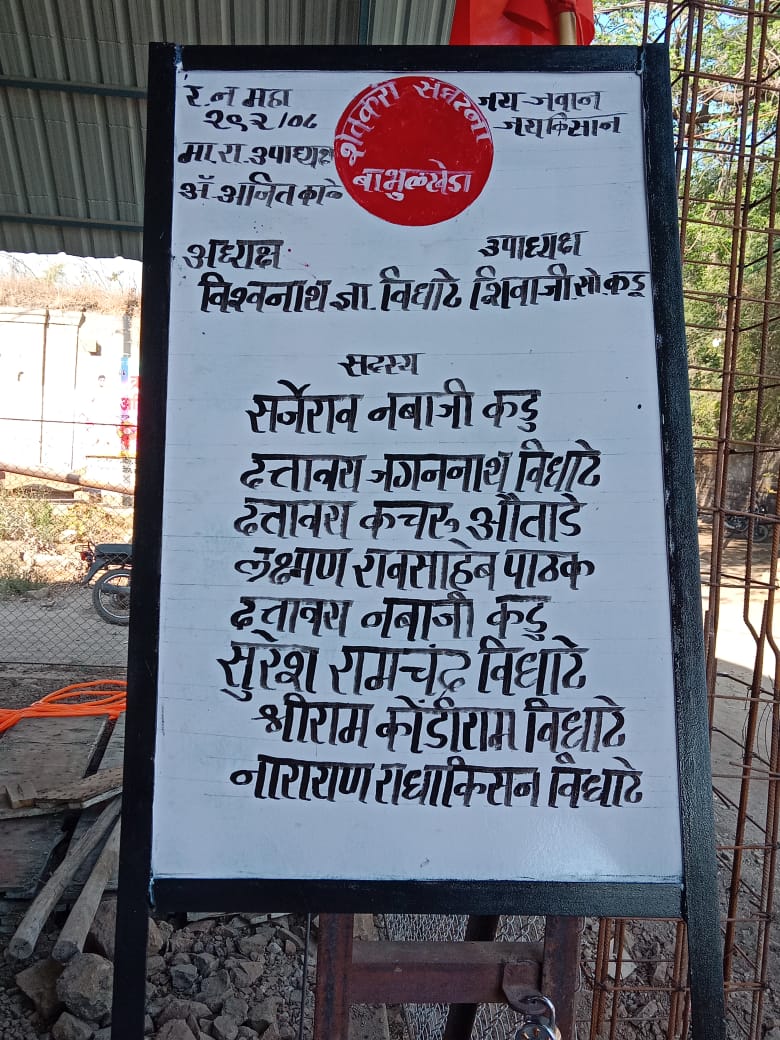 र.न महा
२९२/०८
मा.रा. उपाध्यक्ष
ॲ. अजित काळे
शेतकरी संघटना
बाभुळखेडा
जय जवान
जय किसान
अध्यक्ष
उपाध्यक्ष
विश्वनाथ ज्ञा. विधाटे शिवाजी. सो. कडू
सदस्य
सर्जेराव नबाजी कडु
दत्तात्रय जगन्नाथ विधाटे
दतात्रय कचरू औताडे
लक्ष्मण रावसाहेब पाठक
दत्तात्रय नबाजी कडु
सुरेश रामचंद्र विधाटे
श्रीराम कोंडीराम विधाटे
नारायण राधाकिसन विधाटे